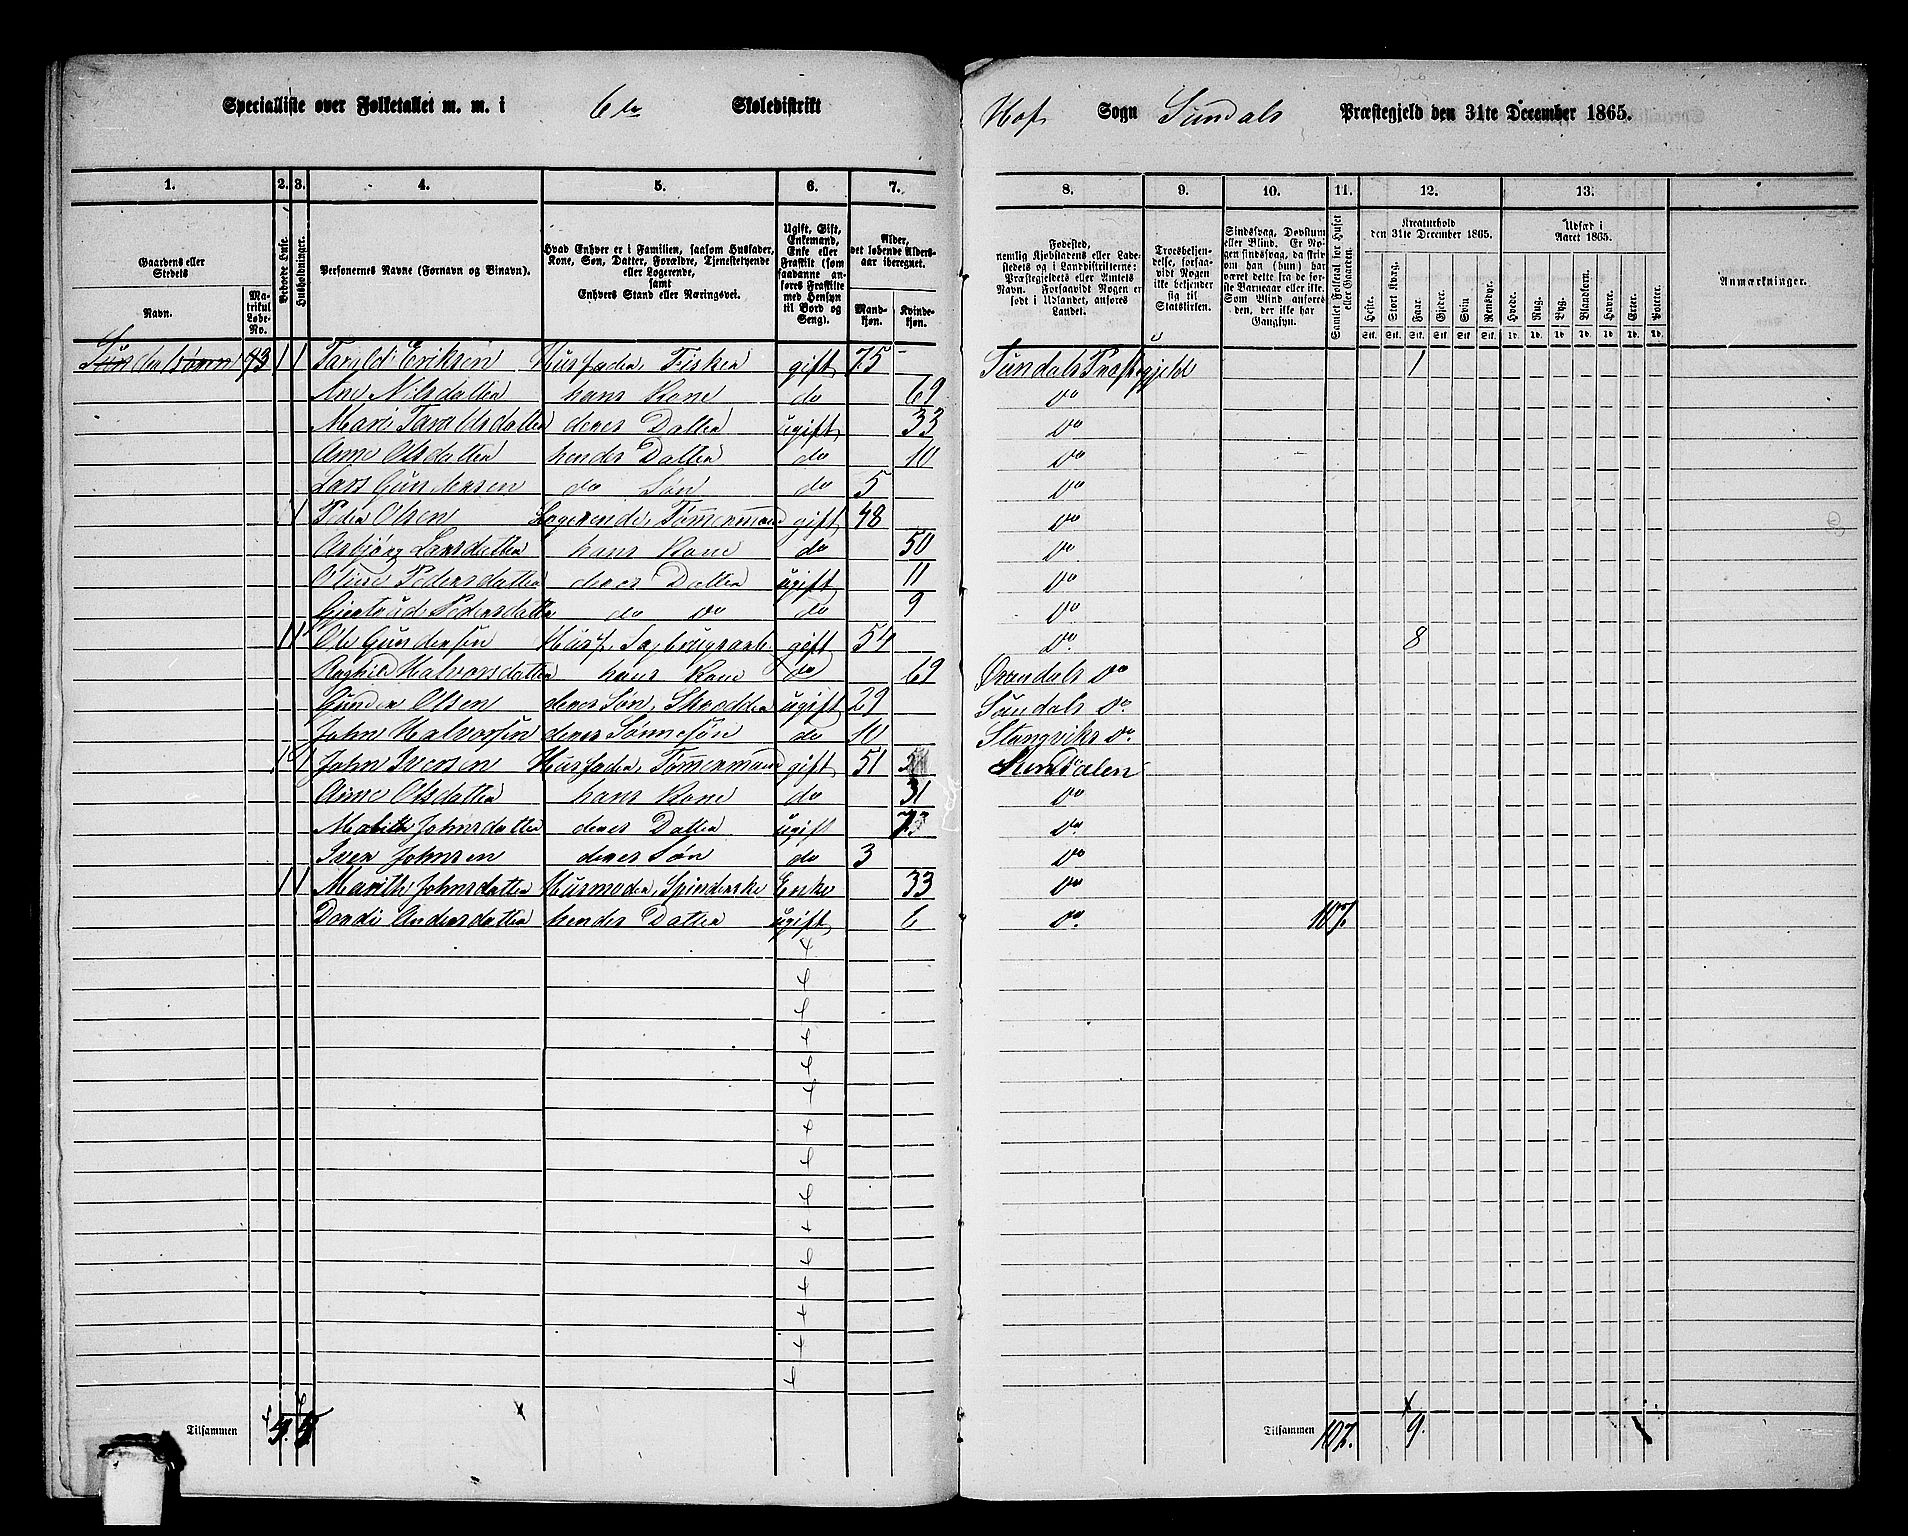 Specialliste over Folketallet m. m. i 6te Skoledistrikt Hof Sogn Sundals Præstegjeld den 31te December 1865.
1. 2. 3. 4. 5. 6. 7. 8. 9. 10. 11. 12. 13.
Gaardens eller Stedets
Navn.
Matrikul Løbe-No.
Beboede Huse.
Husholdninger.
Personernes Navne (Fornavn og Binavn).
Hvad Enhver er i Familien, saasom Husfader, Kone, Søn, Datter, Forældre, Tjenestetyende eller Logerende, samt Enhvers Stand eller Næringsvei.
Ugift, Gift, Enkemand, Enke eller Fraskilt (som saadanne anføres Fraskilte med Hensyn til Bord og Seng).
Alder, det løbende Alders-aar iberegnet.
Mandkjøn.
Kvindekjøn.
Fødested, nemlig Kjøbstadens eller Ladestedets og i Landdistrikterne: Præstegjeldets eller Amtets Navn. Forsaavidt Nogen er født i Udlandet, anføres Landet.
Troesbekjendelse, forsaavidt Nogen ikke bekjender sig til Statskirken.
Sindssvag, Døvstum eller Blind. Er Nogen sindssvag, da skrives om han (hun) har været dette fra de første Barneaar eller ikke. Som Blind anføres den, der ikke har Gangsyn.
Samlet Folketal for Huset eller Gaarden.
Kreaturhold den 31te December 1865.
Heste. Stort Kvæg. Faar. Gjeder. Svin. Rensdyr.
Udsæd i Aaret 1865.
Hvede. Rug. Byg. Blandkorn. Havre. Erter. Poteter.
Anmærkninger.
Sundalsøren 73 1 1 Tarald Eriksen Husfader, Fisker gift 75 Sundals Præstegjeld 1
Ane Nilsdatter hans Kone do 69 do
Mari Taraldsdatter deres Datter ugift 33 do
Anne Olsdatter hendes Datter do 10 do
Lars Gundersen do Søn do 5 do
1 Peder Olsen Logerende, Tømermand gift 48 do
Asbjørg Larsdatter hans Kone do 50 do
Oline Pedersdatter deres Datter ugift 11 do
Gjertrud Pedersdatter do do do 9 do
1 1 Ole Gundersen Husf. gift 54 do 8
Ragnild Halvorsdatter hans Kone do 69 do
Gunder Olsen deres Søn, Skrædder ugift 29 Sundals do
John Halvorsen deres Sønnesøn do 10 Stangviks do
1 1 John Iversen Husfader, Tømermand gift 51
Anne Olsdatter hans Kone do 31 do
Marith Johnsdatter deres Datter ugift do
Iver Johnsen deres Søn do 3 do
1 1 Marith Johnsdatter Husmoder, Spinderske Enke 33 do
Dordi Andersdatter hendes Datter ugift 6 do 107
Tilsammen Tilsammen 107. 9.